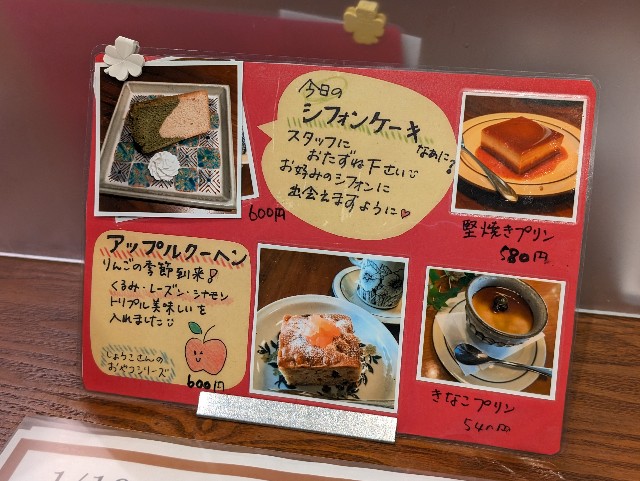 今日の
シフォンケーキ
なあに?
スタッフに
おたずね下さい
お好みのシフォンに
出会えますように♡
600円
堅焼きプリン
580円
アップルクーヘン
りんごの季節到来!
くるみ・レーズン・シナモン
トリプル美味しいを
入れました
しょうこさんの
おやつシリーズ
600円
きなこプリン
540円